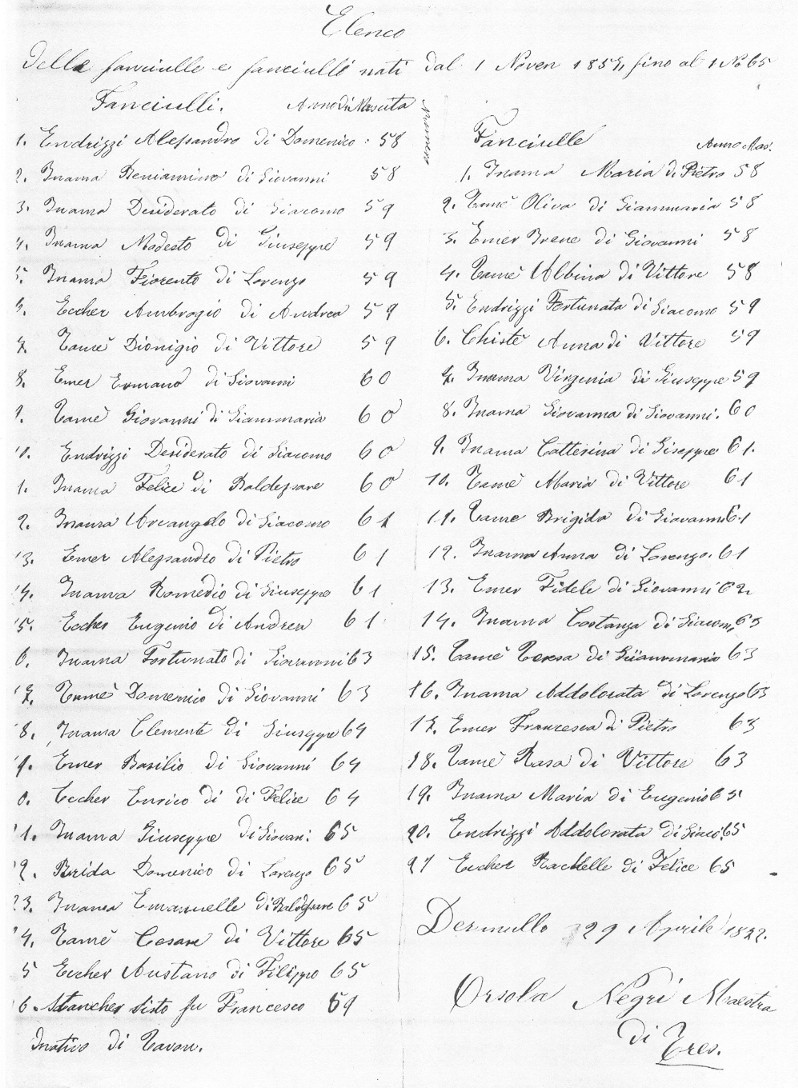 Elenco
delle fanciulle e fanciulli nati dal 1 Noven 1857, fino al 1 No 65
Fanciulli. Anno di Nascita
1. Endrizzi Alessandro di Domenico : 58
2. Inama Beniamino di Giovanni 58
3. Inama Desiderato di Giacomo 59
4. Inama Modesto di Giuseppe 59
5. Inama Fiorento di Lorenzo 59
6. Eccher Ambrogio di Andrea 59
7. Tamè Dionigio di Vittore 59
8. Emer Ermano di Giovanni 60
9. Tamè Giovanni di Gianmaria 60
10. Endrizzi Desiderato di Giacomo 60
1. Inama Felice di Baldessare 60
2. Inama Arcangelo di Giacomo 61
13. Emer Alessandro di Pietro 61
14. Inama Romedio di Giuseppe 61
5. Eccher Eugenio di Andrea 61
6. Inama Fortunato di Giovanni 63
17. Tamè Domenico di Giovanni 63
18. Inama Clemente di Giuseppe 64
19. Emer Basilio di Giovanni 64
0. Eccher Enrico di di Felice 64
21. Inama Giuseppe di Giovani 65
22. Brida Domenico di Lorenzo 65
23. Inama Emanuelle di Baldessare 65
24. Tamè Cesare di Vittore 65
5 Eccher Austano di Filippo 65
6. Stancher Sisto fu Francesco 59
Inativo di Tavon.
Fanciulle Anno Nas.
1. Inama Maria di Pietro 58
2. Tamè Oliva di Gianmaria 58
3. Emer Irene di Giovanni 58
4. Tamè Albina di Vittore 58
5. Endrizzi Fortunata di Giacomo 59
6. Chistè Anna di Vittore 59
7. Inama Virginia di Giuseppe 59
8. Inama Giovanna di Giovanni. 60
9. Inama Catterina di Giseppe 61.
10. Tamè Maria di Vittore 61
11. Tamè Brigida di Giovanni 61
12. Inama Anna di Lorenzo. 61
13. Emer Fidele di Giovanni 62
14. Inama Costanza di Giacomo 63
15. Tamè Teresa di Gianmaria 63
16. Inama Addolorata di Lorenzo 63
17. Emer Francesca di Pietro 63
18. Tamè Rosa di Vittore 63
19. Inama Maria di Eugenio 65
20. Endrizzi Addolorata di Giaco: 65
21 Eccher Rachelle di Felice 65
Dermullo 29 Aprile 1872.
Orsola Negri Maestra
di Tres.